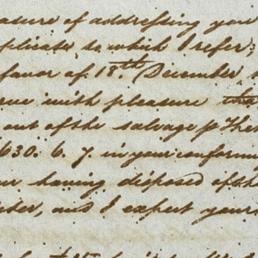 asure of addressing you
plicate, to which I refer;
favor of 18th December,
ve with pleasure tha
out of the salvage p The
630. 6. 7. in your conform
having disposed of th
and I expect your